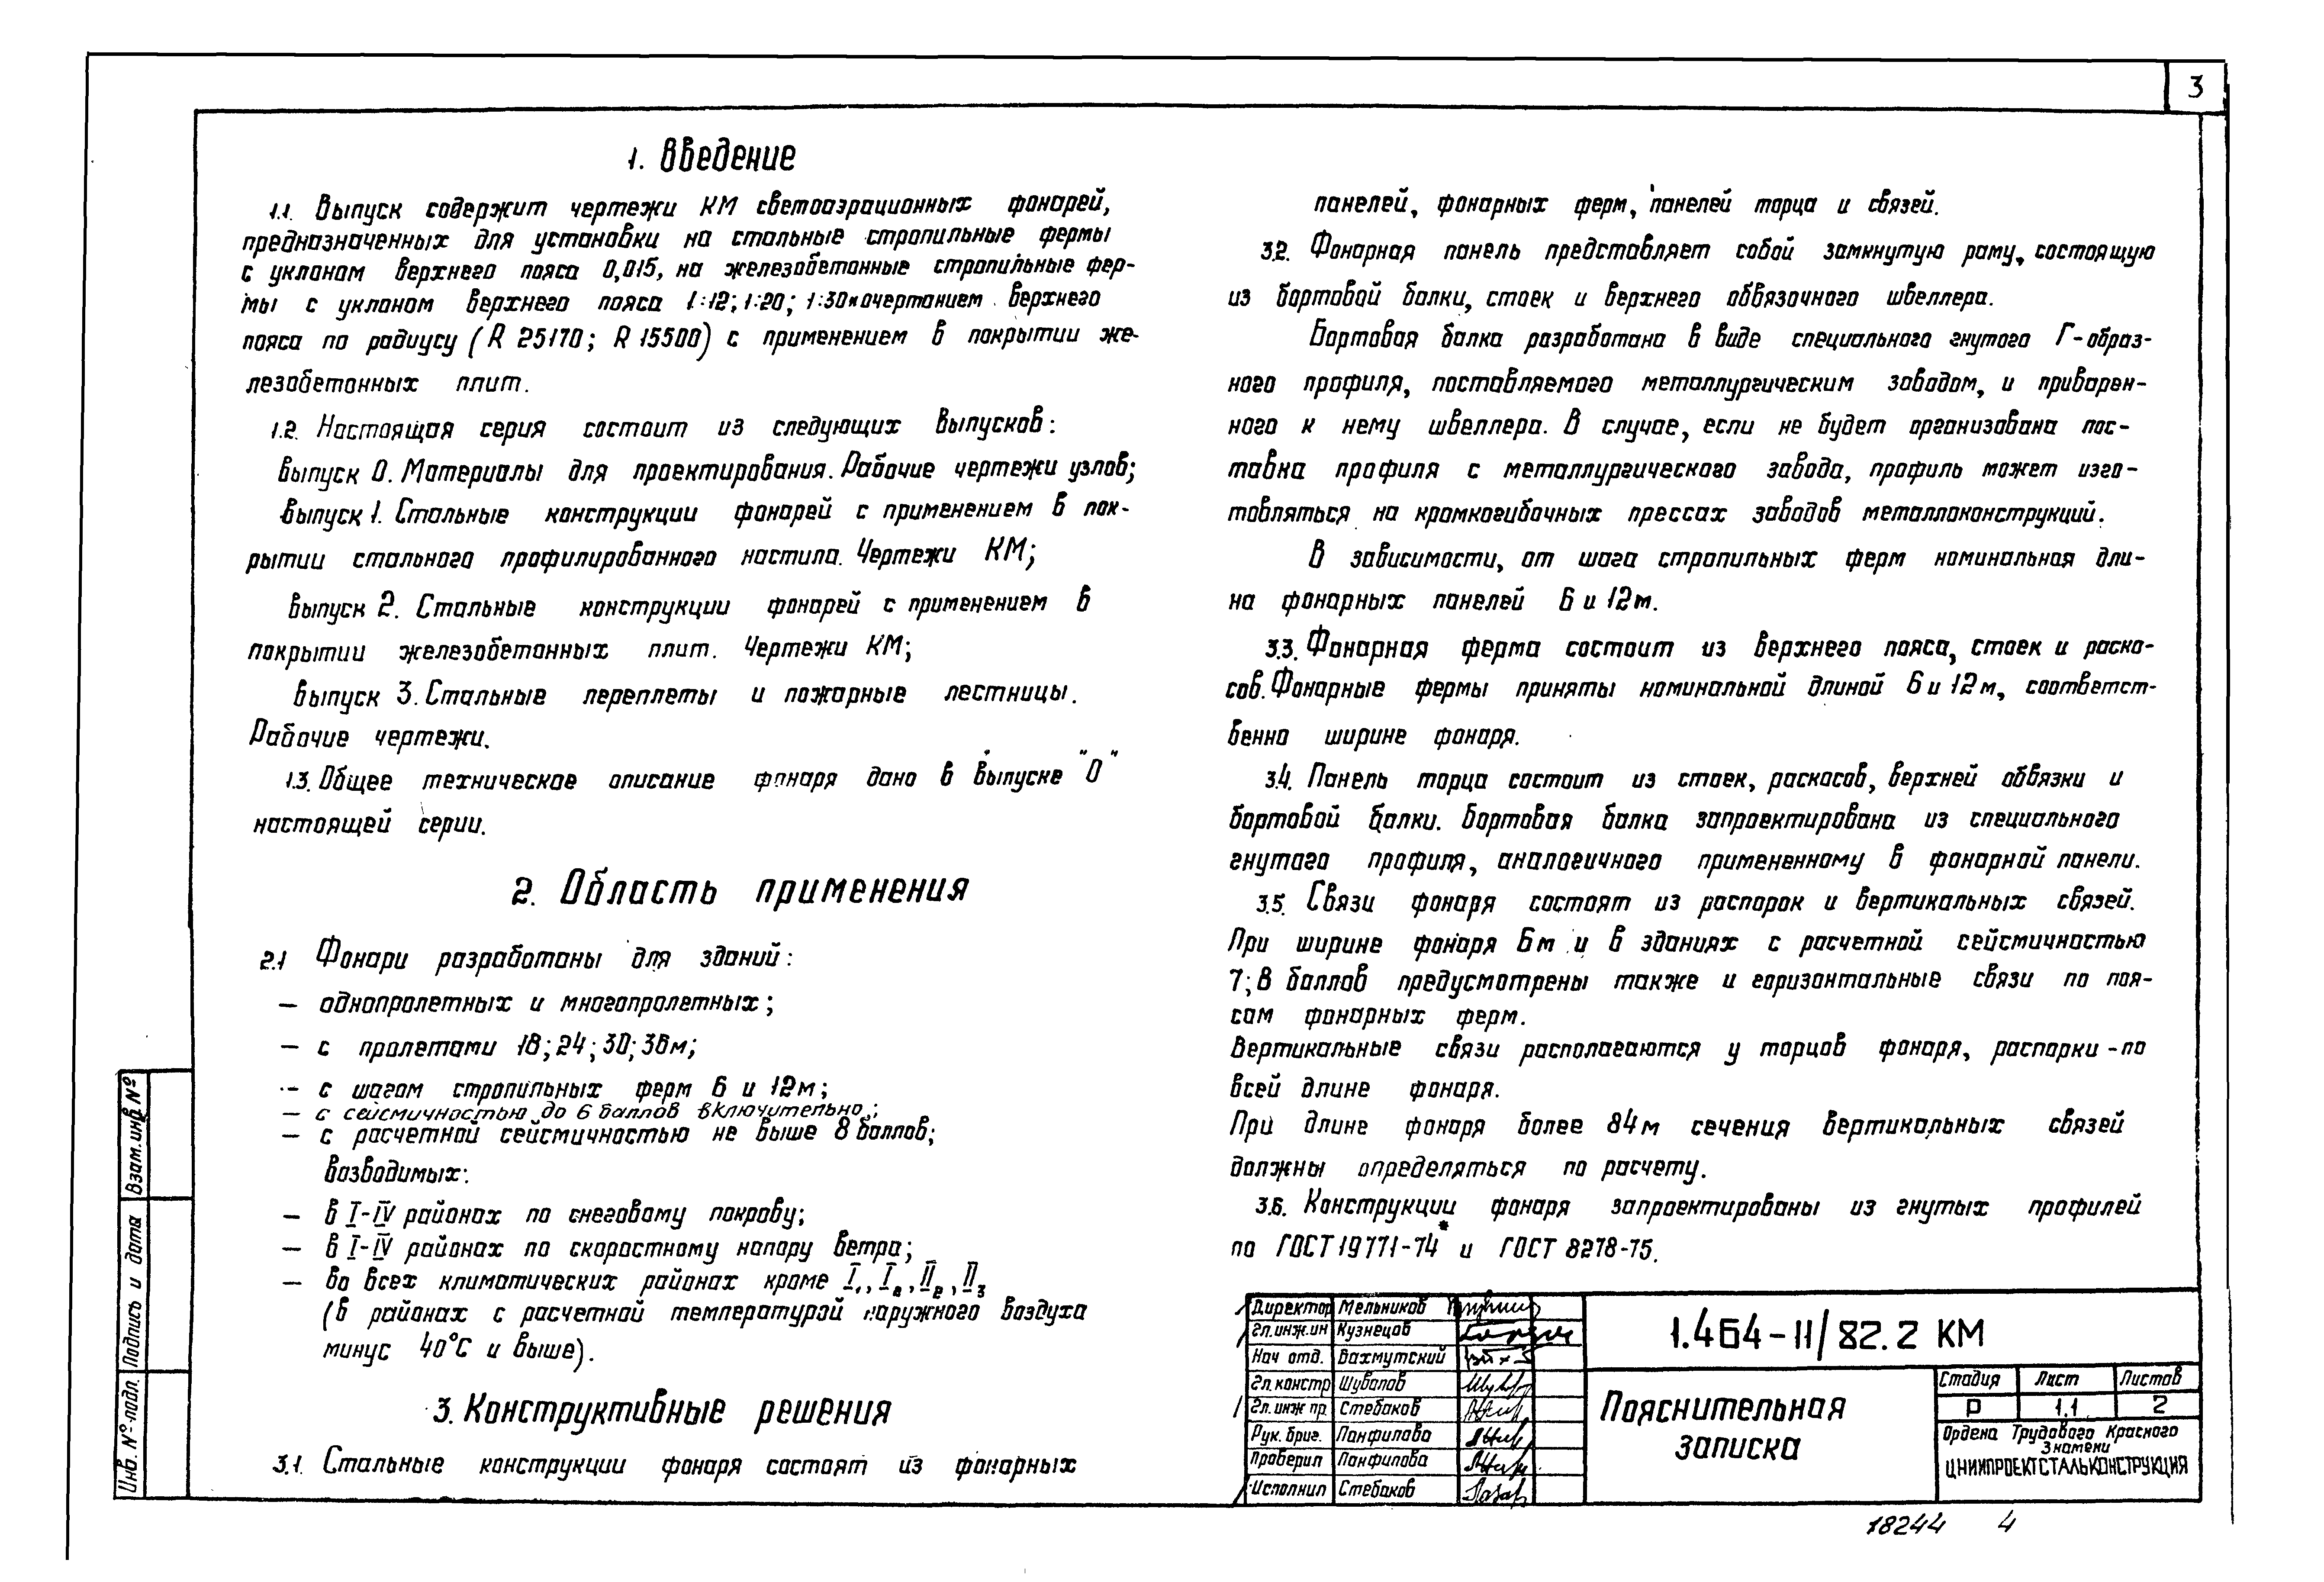 3
1. Введение
1.1. Выпуск содержит чертежи КМ светоаэрационных фонарей,
предназначенных для установки на стальные стропильные фермы
с уклоном верхнего пояса 0,015, на железобетонные стропильные фер-
мы с уклоном верхнего пояса 1:12; 1:20; 1:30 и очертанием верхнего
пояса по радиусу (R 25170; R 15500) с применением в покрытии же-
лезобетонных плит.
1.2. Настоящая серия состоит из следующих выпусков:
выпуск 0. Материалы для проектирования. Рабочие чертежи узлов;
выпуск 1. Стальные конструкции фонарей с применением в пок-
рытии стального профилированного настила. Чертежи КМ;
выпуск 2. Стальные конструкции фонарей с применением в
покрытии железобетонных плит. Чертежи КМ;
выпуск 3. Стальные переплеты и пожарные лестницы.
Рабочие чертежи.
1.3. Общее техническое описание фонаря дано в выпуске "0"
настоящей серии.
2. Область применения
2.1 Фонари разработаны для зданий:
– однопролетных и многопролетных;
– с пролетами 18; 24; 30; 36м;
– с шагом стропильных ферм 6 и 12м;
– с сейсмичностью до 6 баллов включительно;
– с расчетной сейсмичностью не выше 8 баллов;
возводимых:
– в I-IV районах по снеговому покрову;
– в I-IV районах по скоростному напору ветра;
– во всех климатических районах кроме I₁, I₂, II₂, II₃
(в районах с расчетной температурой наружного воздуха
минус 40°С и выше).
3. Конструктивные решения
3.1. Стальные конструкции фонаря состоят из фонарных
панелей, фонарных ферм, панелей торца и связей.
3.2. Фонарная панель представляет собой замкнутую раму, состоящую
из бортовой балки, стоек и верхнего обвязочного швеллера.
Бортовая балка разработана в виде специального гнутого Г-образ-
ного профиля, поставляемого металлургическим заводом, и приварен-
ного к нему швеллера. В случае, если не будет организована пос-
тавка профиля с металлургического завода, профиль может изго-
товляться на кромкогибочных прессах заводов металлоконструкций.
В зависимости, от шага стропильных ферм номинальная дли-
на фонарных панелей 6 и 12м.
3.3. Фонарная ферма состоит из верхнего пояса, стоек и раско-
сов. Фонарные фермы приняты номинальной длиной 6 и 12м, соответст-
венно ширине фонаря.
3.4. Панель торца состоит из стоек, раскосов, верхней обвязки и
бортовой балки. Бортовая балка запроектирована из специального
гнутого профиля, аналогичного примененному в фонарной панели.
3.5. Связи фонаря состоят из распорок и вертикальных связей.
При ширине фонаря 6м и в зданиях с расчетной сейсмичностью
7; 8 баллов предусмотрены также и горизонтальные связи по поя-
сам фонарных ферм.
Вертикальные связи располагаются у торцов фонаря, распорки - по
всей длине фонаря.
При длине фонаря более 84м сечения вертикальных связей
должны определяться по расчету.
3.6. Конструкции фонаря запроектированы из гнутых профилей
по ГОСТ 19771-74* и ГОСТ 8278-75.
Инв. № подл. Подпись и дата Взам. инв №
Директор Мельников
Гл. инж. ин Кузнецов
Нач отд. Бахмутский
Гл. констр Шувалов
Гл. инж пр. Стебаков
Рук. бриг. Панфилова
Проверил Панфилова
Исполнил Стебаков
1.464-11/82.2 КМ
Пояснительная
записка
Стадия Лист Листов
Р 1.1 2
Ордена Трудового Красного
Знамени
ЦНИИПРОЕКТСТАЛЬКОНСТРУКЦИЯ
18244 4